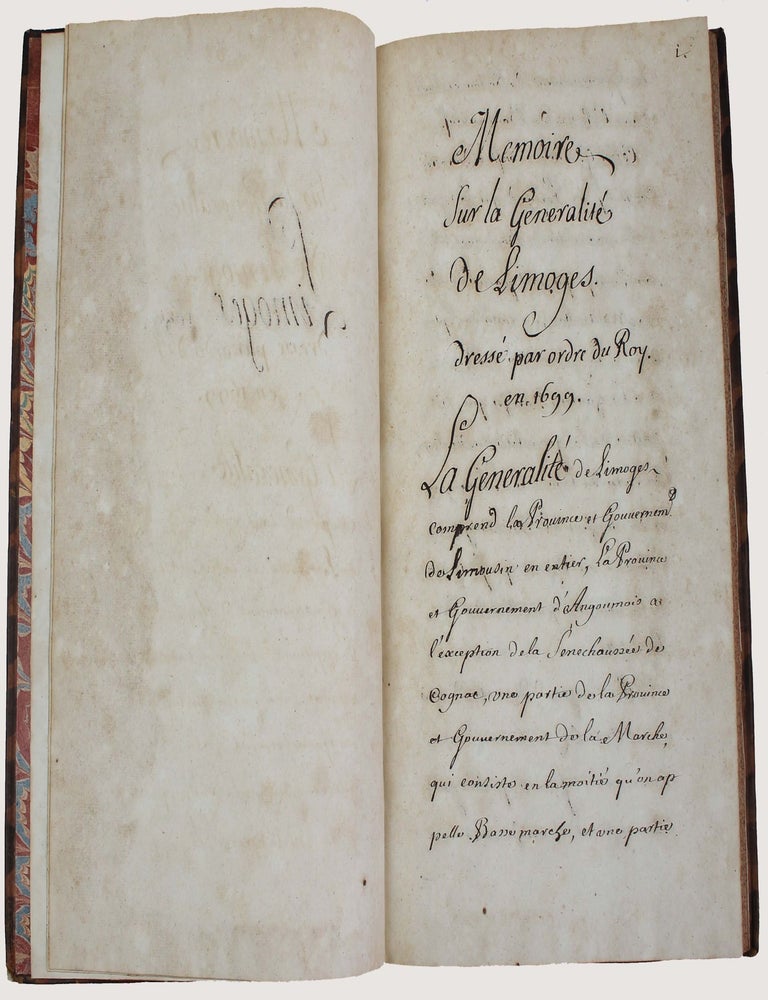 Memoire
Sur la Generalité
de Limoges.
dressé par ordre du Roy.
en 1699.
La Generalité de Limoges
comprend la Prouince et Gouvernem.t
de Limousin en entier, La Prouince
et Gouuernement d'Angoumois a
l'exception de la Senechaussée de
Cognac, vne partie de la Prouince
et Gouuernement de la Marche,
qui consiste en la moitié qu'on ap
pelle Basse marche, et vne partie